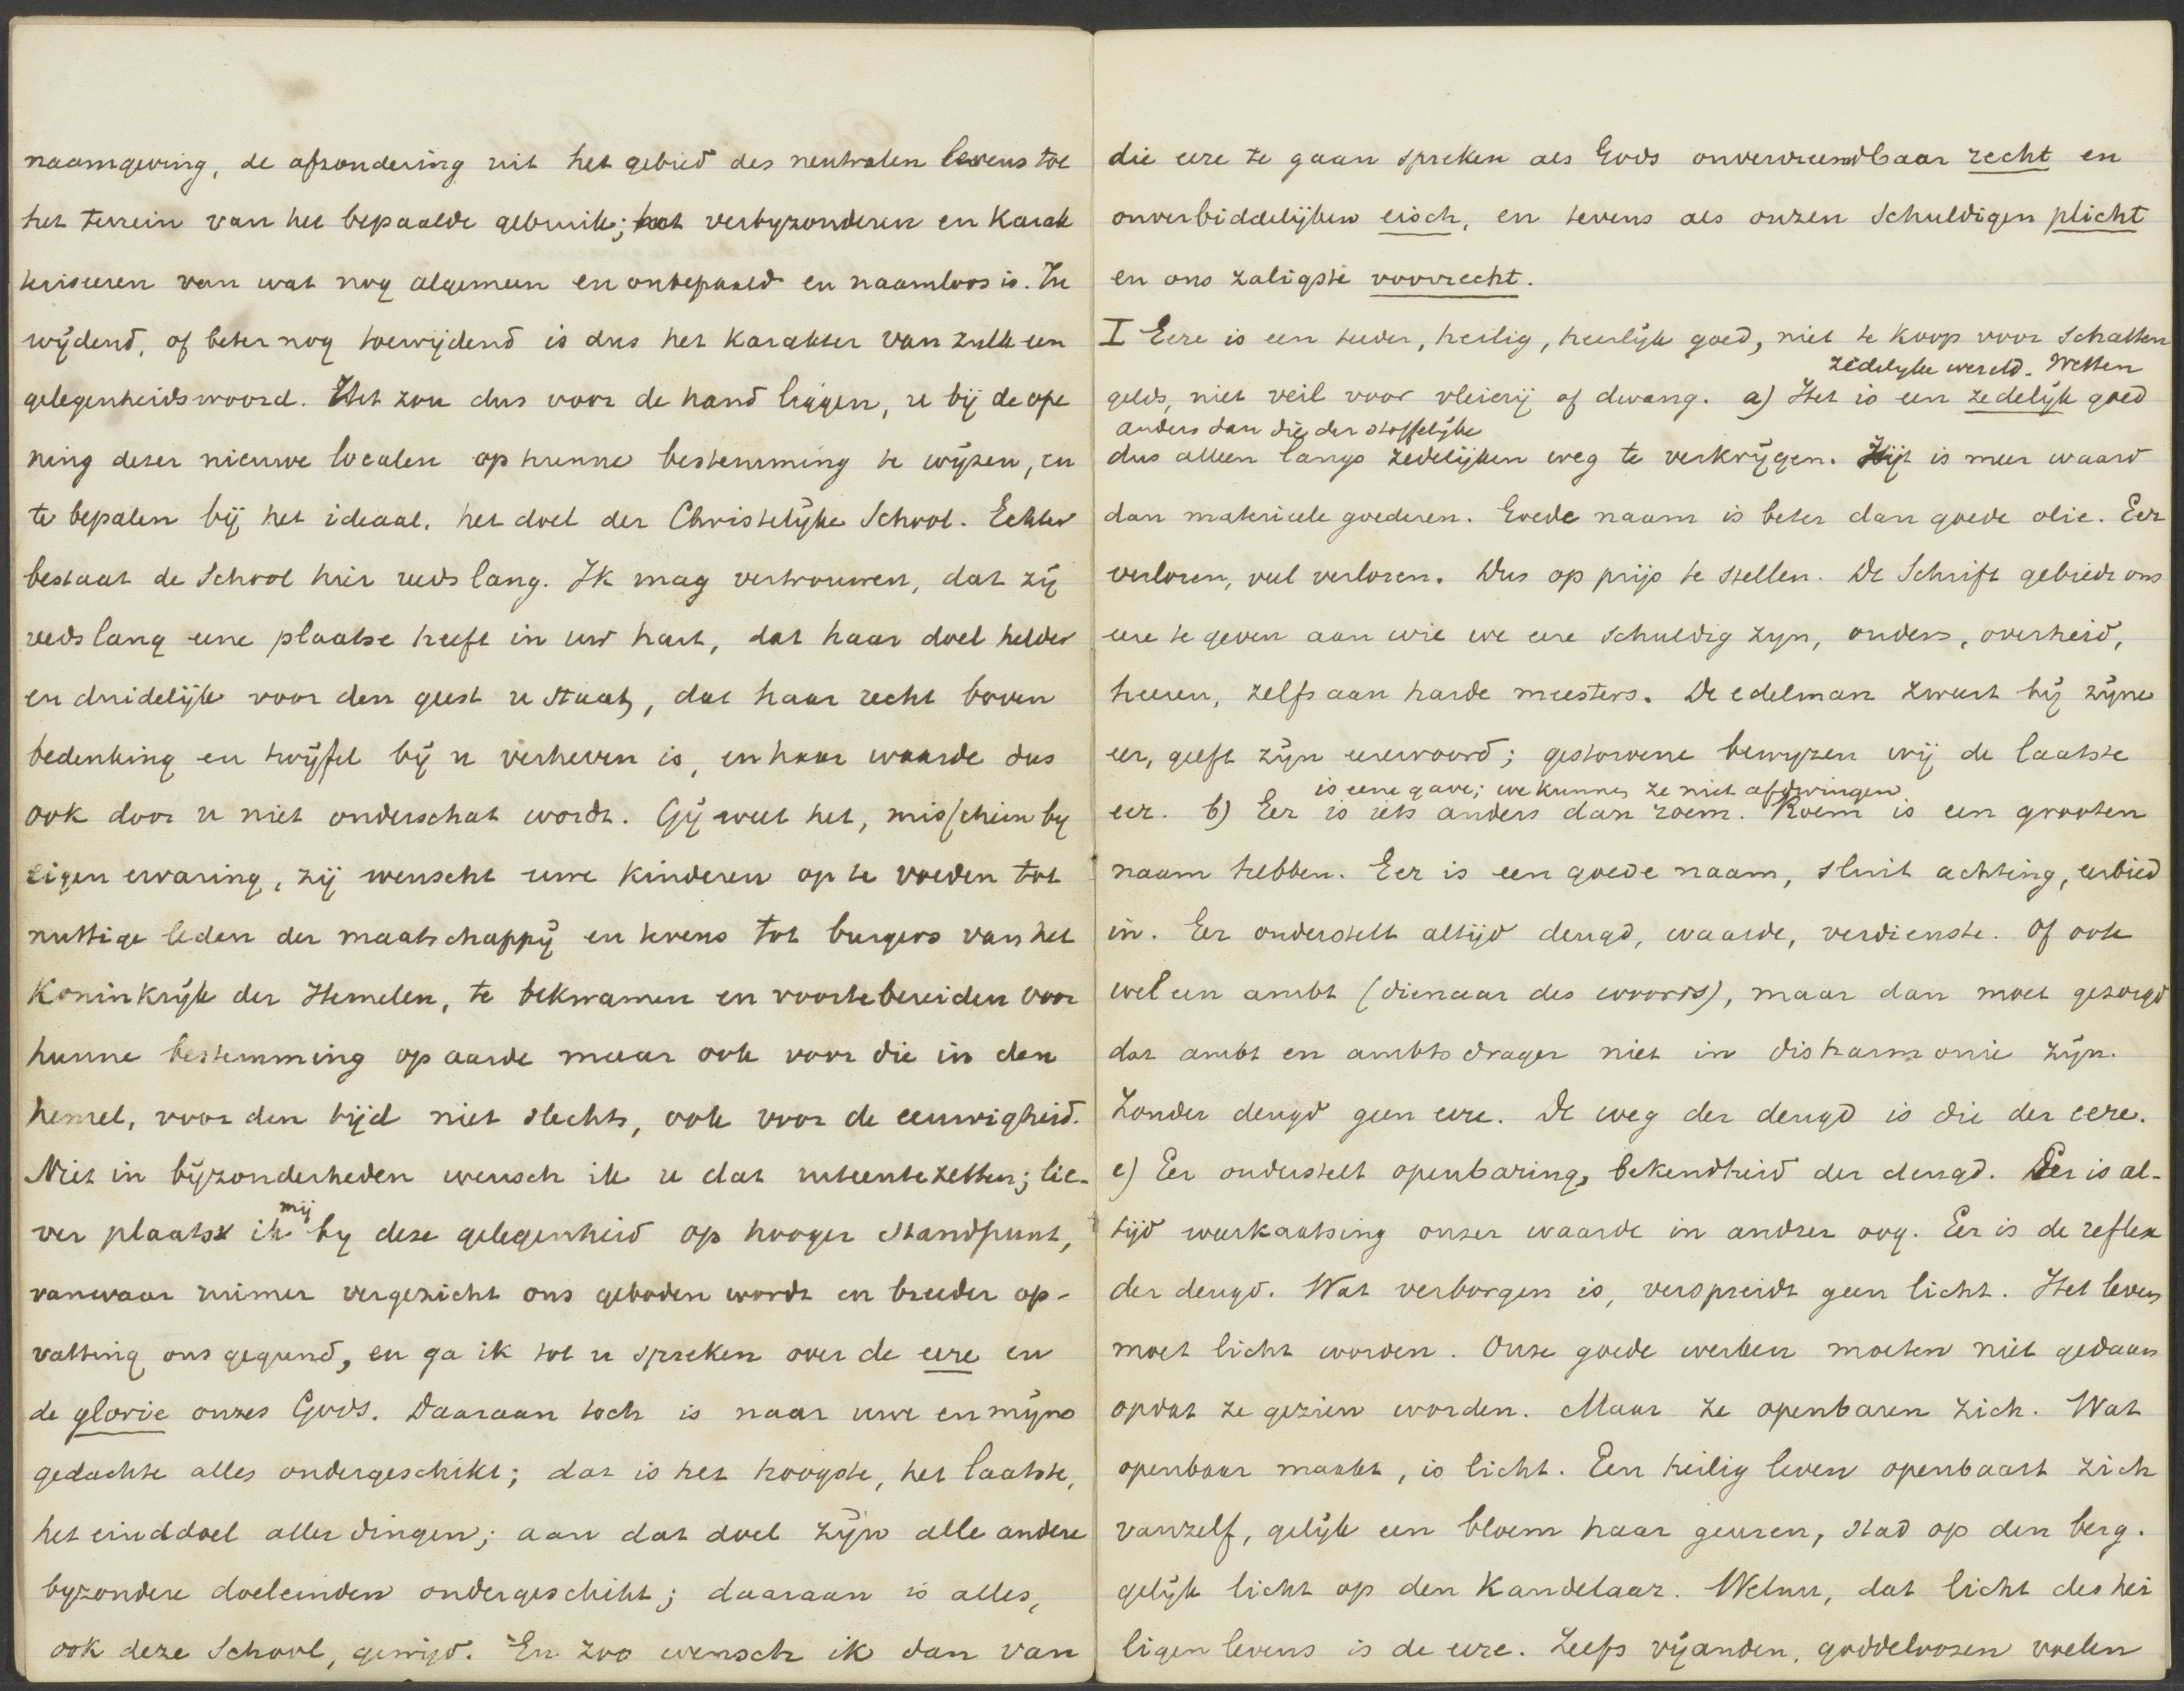 naamgeving, de afzondering uit het gebied des neutralen levens tot
het terrein van het bepaalde gebruik; het verbyzonderen en Karak
teriseeren van wat nog algemeen en onbepaald en naamloos is. In
wijdend, of beter nog toewijdend is dus het Karakter van zulk een
gelegenheidswoord. Het zou dus voor de hand liggen, u bij de ope
ning dezer nieuwe localen op hunne bestemming te wijzen, en
te bepalen bij het ideaal, het doel der Christelijke School. Echter
bestaat de School hier reeds lang. Ik mag vertrouwen, dat zij
reeds lang eene plaatse heeft in uw hart, dat haar doel helder
en duidelijk voor den geest u staat, dat haar recht boven
bedenking en twijfel bij u verheven is, en haar waarde dus
ook door u niet onderschat wordt. Gij weet het, misschien by
eigen ervaring, zij wenscht uwe kinderen op te voeden tot
nuttige leden der maatschappij en tevens tot burgers van het
Koninkrijk der Hemelen, te bekwamen en voortebereiden voor
hunne bestemming op aarde maar ook voor die in den
hemel, voor den tijd niet slechts, ook voor de eeuwigheid.
Niet in bijzonderheden wensch ik u dat uiteentezetten; lie-
ver plaats ik mij by deze gelegenheid op hooger standpunt,
vanwaar ruimer vergezicht ons geboden wordt en breeder op-
vatting ons gegund, en ga ik tot u spreken over de eere en
de glorie onzes Gods. Daaraan toch is naar uwe en mijne
gedachte alles ondergeschikt; dat is het hoogste, het laatste,
het einddoel aller dingen; aan dat doel zijn alle andere
byzondere doeleinden ondergeschikt; daaraan is alles,
ook deze School, gewijd. En zoo wensch ik dan van
die eere te gaan spreken als Gods onvervreemdbaar recht en
onverbiddelijken eisch, en tevens als onzen schuldigen plicht
en ons zaligste voorrecht.
I Eere is een teeder, heilig, heerlijk goed, niet te koop voor Schatten
zedelyke wereld. Wetten
gelds, niet veil voor vleierij of dwang. a) Het is een zedelijk goed
anders dan die der stoffelijke
dus alleen langs zedelijken weg te verkrijgen. Zij is meer waard
dan materieele goederen. Goede naam is beter dan goede olie. Eer
verloren, veel verloren. Dus op prijs te stellen. De Schrift gebiedt ons
eere te geven aan wie we eere schuldig zyn, ouders, overheid,
heeren, zelfs aan harde meesters. De edelman zweert bij zijne
eer, geeft zijn eerewoord; gestorvene bewyzen wij de laatste
is eene gave; we kunnen ze niet afdwingen
eer. b) Eer is iets anders dan roem. Roem is een grooten
naam hebben. Eer is een goede naam, sluit achting, eerbied
in. Eer onderstelt altijd deugd, waarde, verdienste. Of ook
wel een ambt (dienaar des woords), maar dan moet gezorgd
dat ambt en ambtsdrager niet in disharmonie zijn.
Zonder deugd geen eere. De weg der deugd is die der eere.
c) Eer onderstelt openbaring, bekendheid der deugd. Eer is al-
tijd weerkaatsing onzer waarde in andrer oog. Eer is de reflex
der deugd. Wat verborgen is, verspreidt geen licht. Het leven
moet licht worden. Onze goede werken moeten niet gedaan
opdat ze gezien worden. Maar ze openbaren zich. Wat
openbaar maakt, is licht. Een heilig leven openbaart zich
vanzelf, gelijk een bloem haar geuren, stad op den berg.
gelijk licht op den Kandelaar. Welnu, dat licht des hei
ligen levens is de eere. Zelfs vijanden, goddeloozen voelen